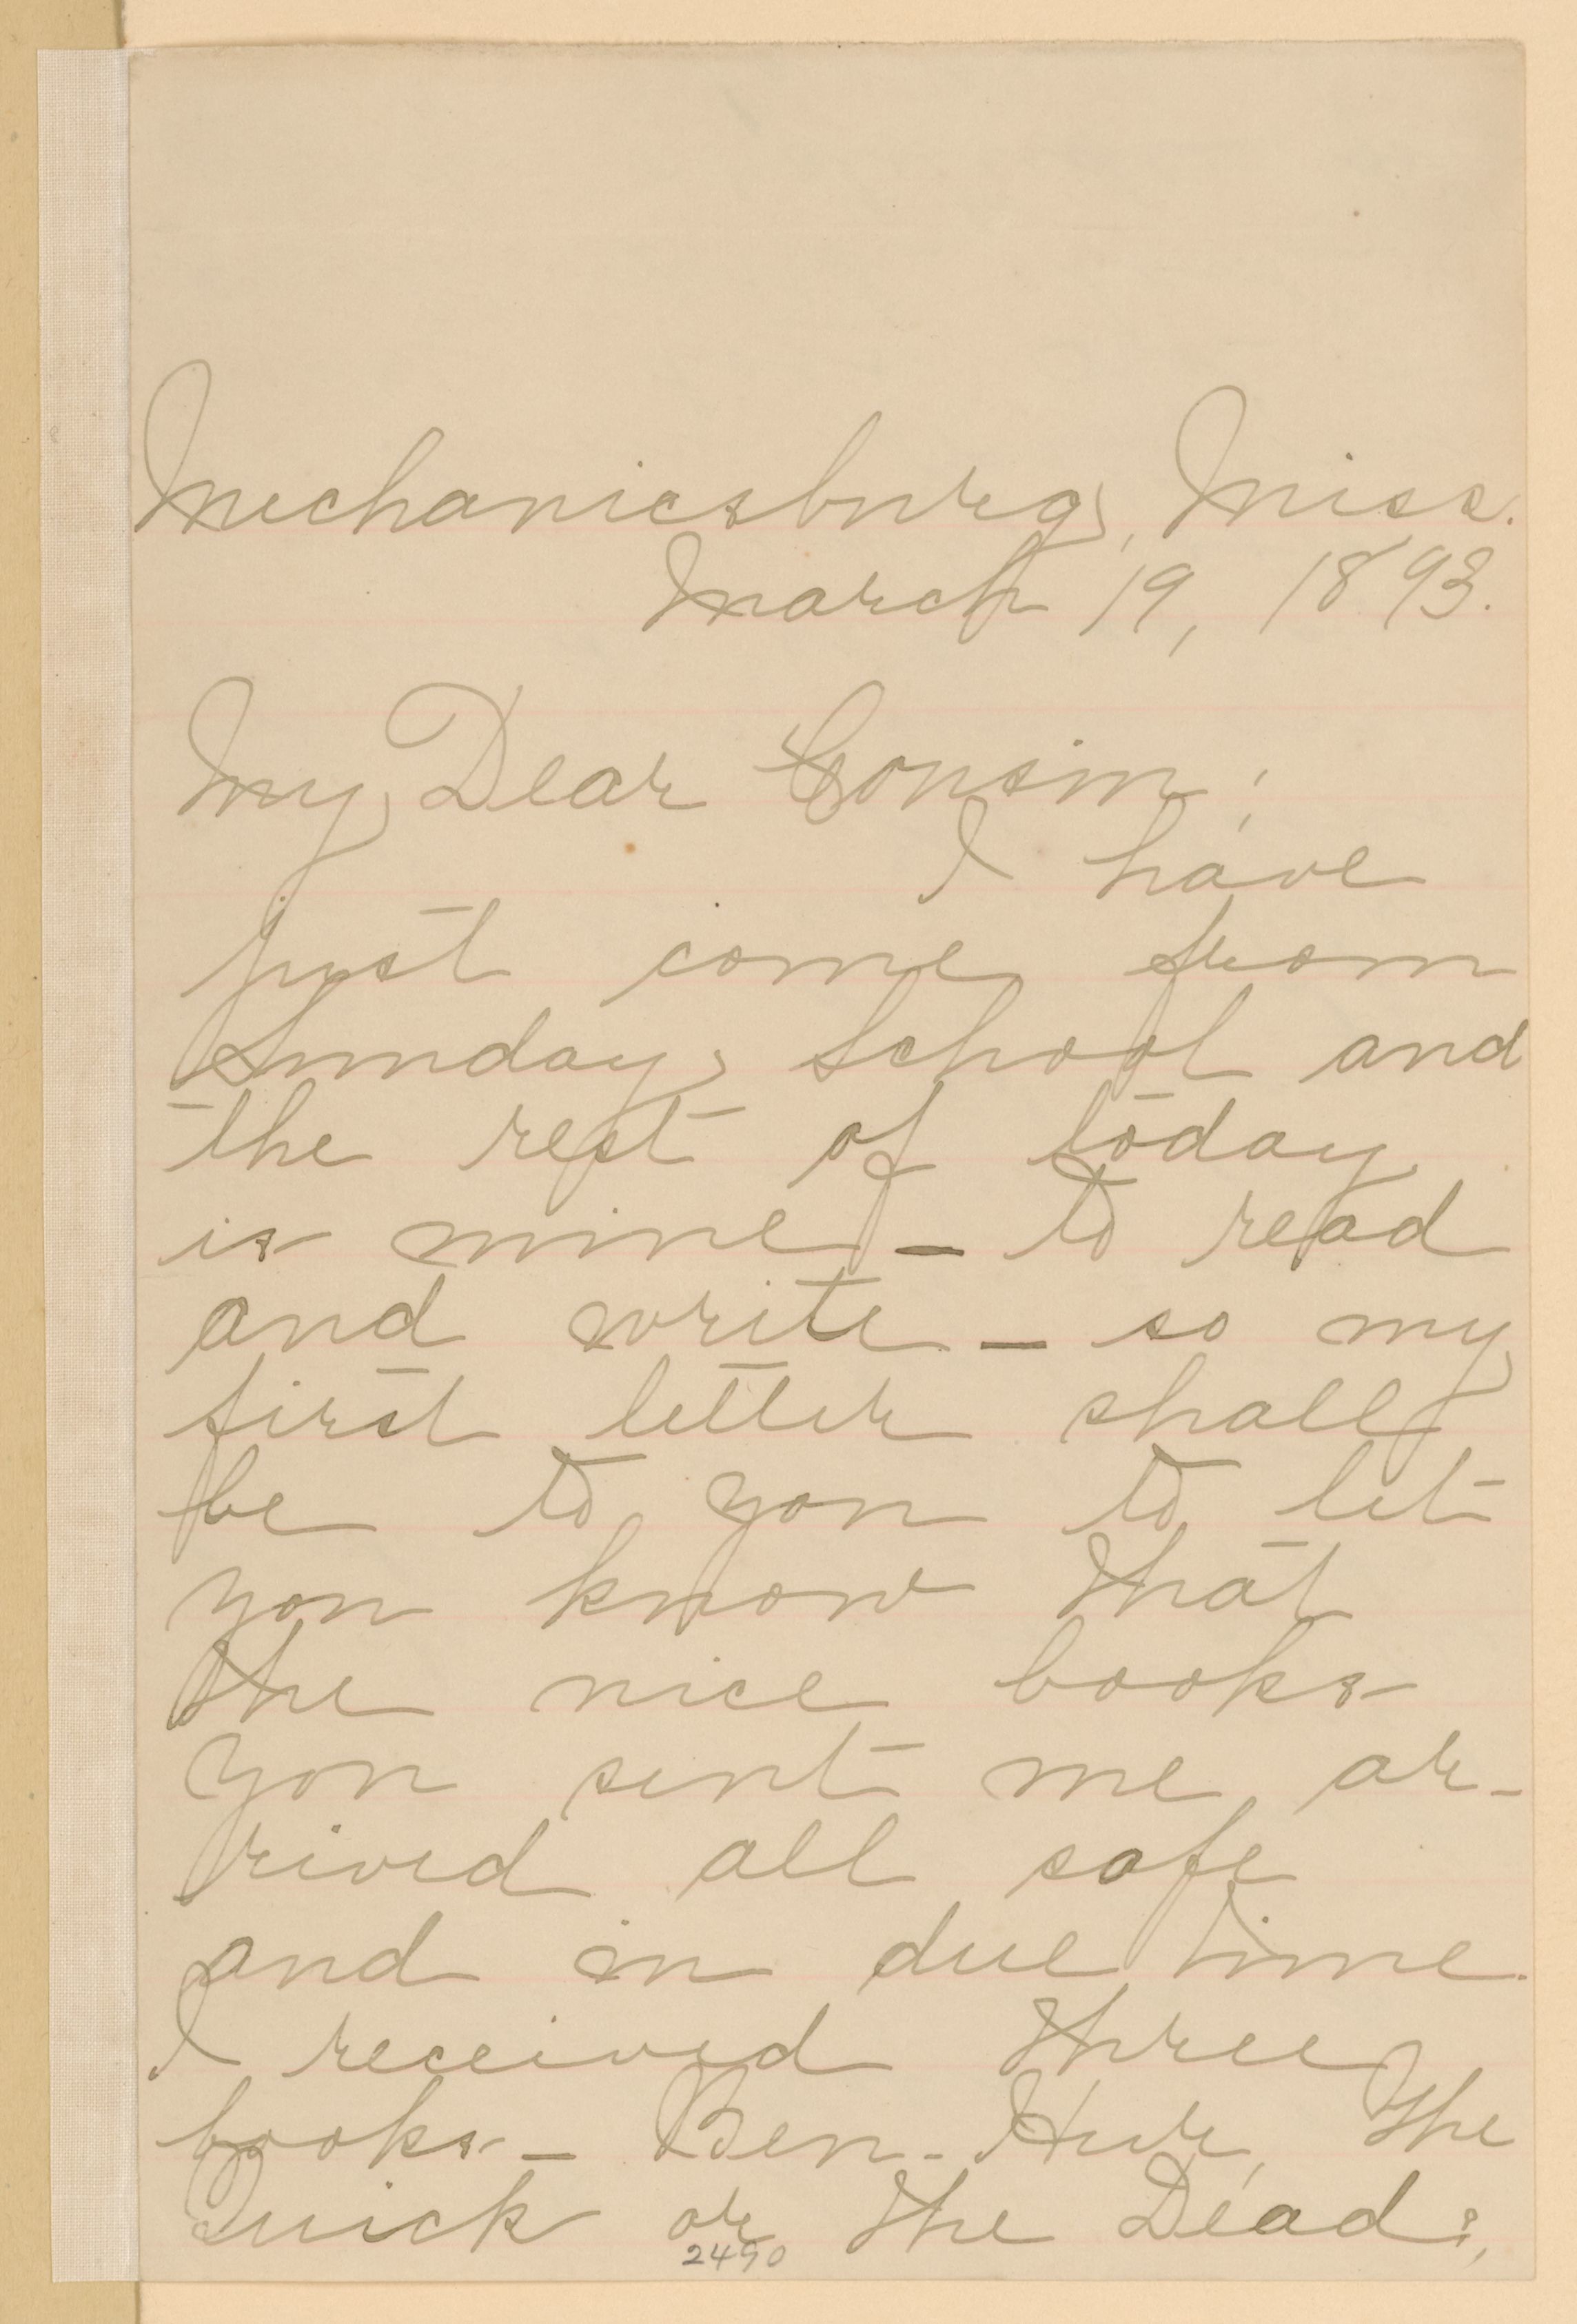 Mechanicsburg, Miss.
March 19, 1893.
My Dear Cousin;
I have
just come from
Sunday School and
the rest of today
is mine — to read
and write — so my
first letter shall
be to you to let
you know that
the nice books
you sent me ar-
rived all safe
and in due time.
I received three
books — Ben-Hur, The
Quick or the Dead?,
2490